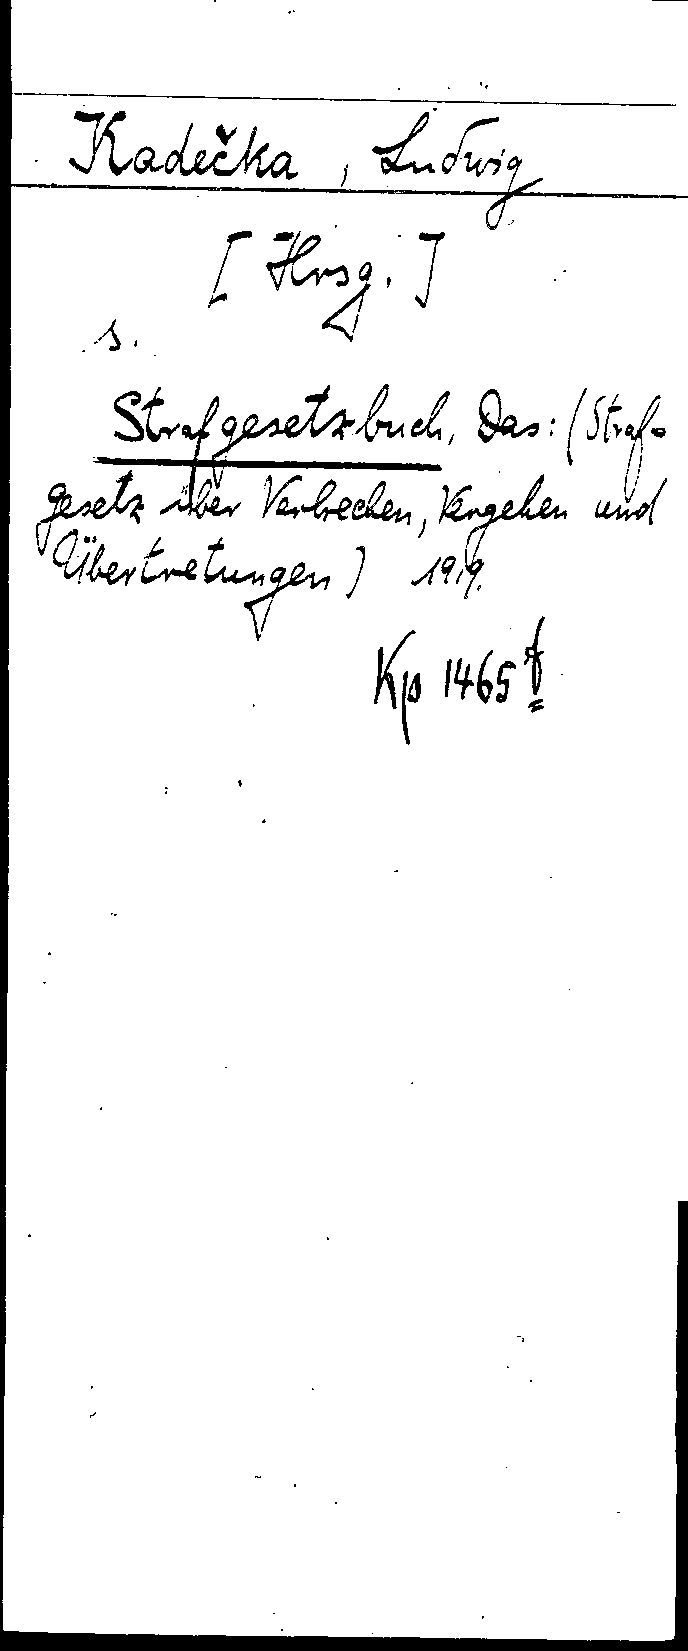 Kadečka, Ludwig
[Hrsg.]
s.
Strafgesetzbuch, Das: (Straf-
gesetz über Verbrechen, Vergehen und
Übertretungen) 1919.
Kp 1465 f